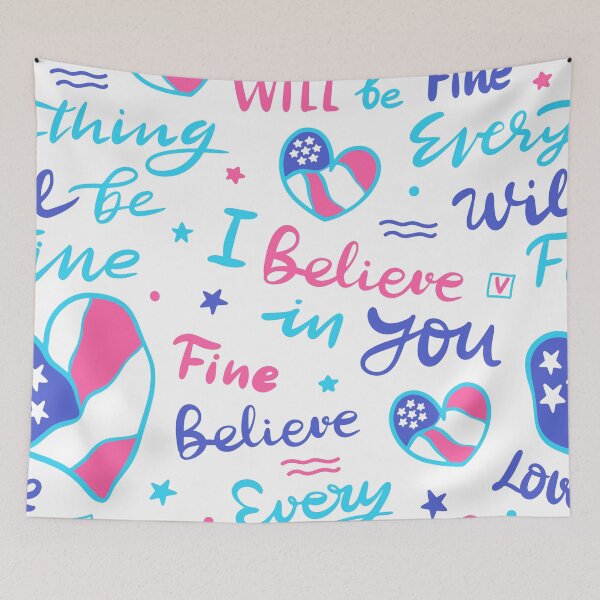 WILL be Fine
thing
be
ine
Every
Wil
I Believe
in you
V
Fine
Believe
Every
Love